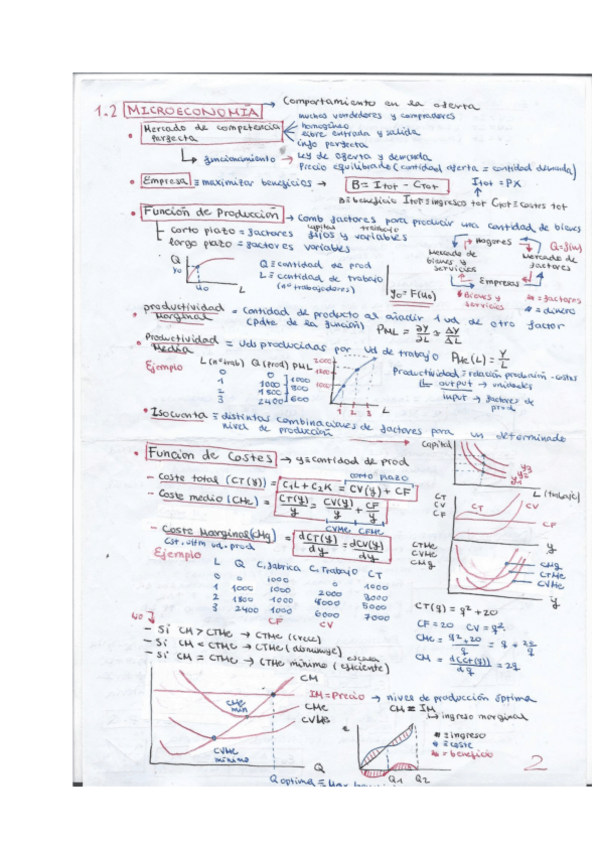 1.2 MICROECONOMÍA → Comportamiento en la oferta
• Mercado de competencia perfecta
muchos vendedores y compradores
homogéneo
libre entrada y salida
info perfecta
↳ funcionamiento → Ley de oferta y demanda
Precio equilibrado (cantidad oferta = cantidad demanda)
• Empresa ≡ maximizar beneficios → B = Itot - Ctot Itot = PX
B ≡ beneficio Itot ≡ ingreso tot Ctot ≡ costes tot
• Función de Producción → comb factores para producir una cantidad de bienes
corto plazo = factores fijos y variables
largo plazo = factores variables
Q
Yo
uo
L
Q ≡ cantidad de prod
L ≡ cantidad de trabajo
(nº trabajadores)
yo = F(uo)
Hogares
Q = f(u)
Mercado de bienes y servicios
Mercado de factores
Empresas
Bienes y servicios
= factores
= dinero
• Productividad Marginal = Cantidad de producto al añadir 1 ud de otro factor
(pdte de la función) PML = ∂Y/∂L = ΔY/ΔL
• Productividad Media = Uds producidas por ud de trabajo PMe(L) = Y/L
Ejemplo
L (nº trab) Q (prod) PML
0 0
1 1000 1000
2 1800 800
3 2400 600
1 2 3 L
Productividad ≡ relación producción - costes
↳ output → unidades
input → factores de prod
• Isocuanta ≡ distintas combinaciones de factores para un determinado
nivel de producción
Capital
L (trabajo)
• Función de Costes → y ≡ cantidad de prod
corto plazo
- Coste total (CT(y)) = C1L + C2K = CV(y) + CF
- Coste medio (CMe) = CT(y)/y = CV(y)/y + CF/y
CVMe CFMe
- Coste Marginal (CMg) = dCT(y)/dy = dCV(y)/dy
Cst. ultm ud. prod
CT
CV
CF
CT CV
CF
y
CTMe
CVMe
CMg
CMg
CTMe
CVMe
y
Ejemplo
L Q C. fabrica C. Trabajo CT
0 0 1000 0 1000
1 1000 1000 2000 3000
2 1800 1000 4000 5000
3 2400 1000 6000 7000
CF CV
CT(q) = q² + 20
CF = 20 CV = q²
CMe = q² + 20/q = q + 20/q
CM = d(CT(q))/dq = 2q
- Si CM > CTMe → CTMe (crece)
- Si CM < CTMe → CTMe (disminuye)
- Si CM = CTMe → CTMe mínimo (eficiente)
CM
IM = Precio → nivel de producción óptima
CM = IM
↳ ingreso marginal
CMe
CVMe
CMe min
CVMe mínimo
Q
≡ ingreso
≡ coste
= beneficio
Q1 Q2
2
Q optima